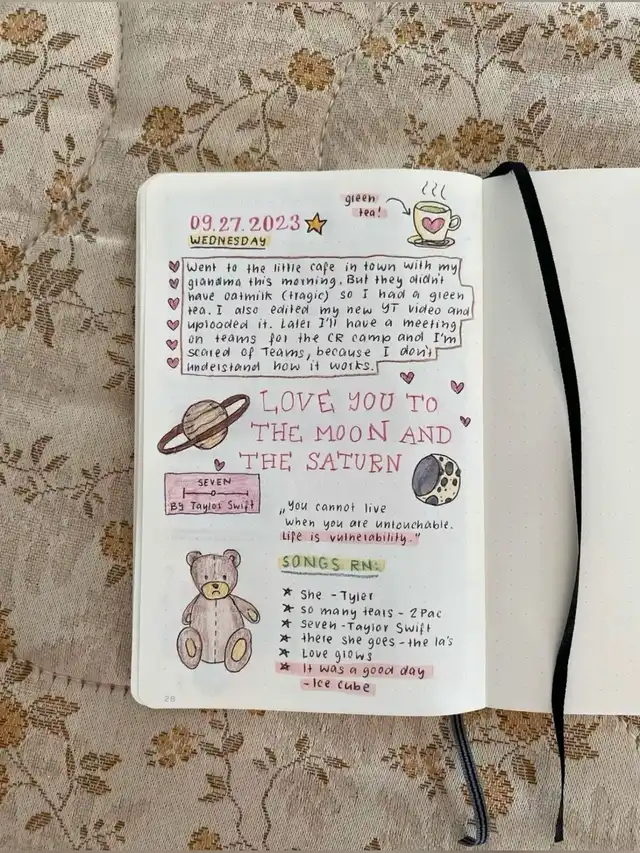 green
tea!
09.27.2023
WEDNESDAY
Went to the little cafe in town with my
grandma this morning. But they didn't
have oatmilk (tragic) so I had a green
tea. I also edited my new YT video and
uploaded it. Later I'll have a meeting
on teams for the CR camp and I'm
scared of Teams, because I don't
understand how it works.
LOVE YOU TO
THE MOON AND
THE SATURN
SEVEN
By Taylor Swift
„You cannot live
when you are untouchable.
Life is vulnerability."
SONGS RN:
★ She - Tyler
★ so many tears - 2Pac
★ seven - Taylor Swift
★ there she goes - the la's
★ Love glows
★ It was a good day
- Ice Cube
28